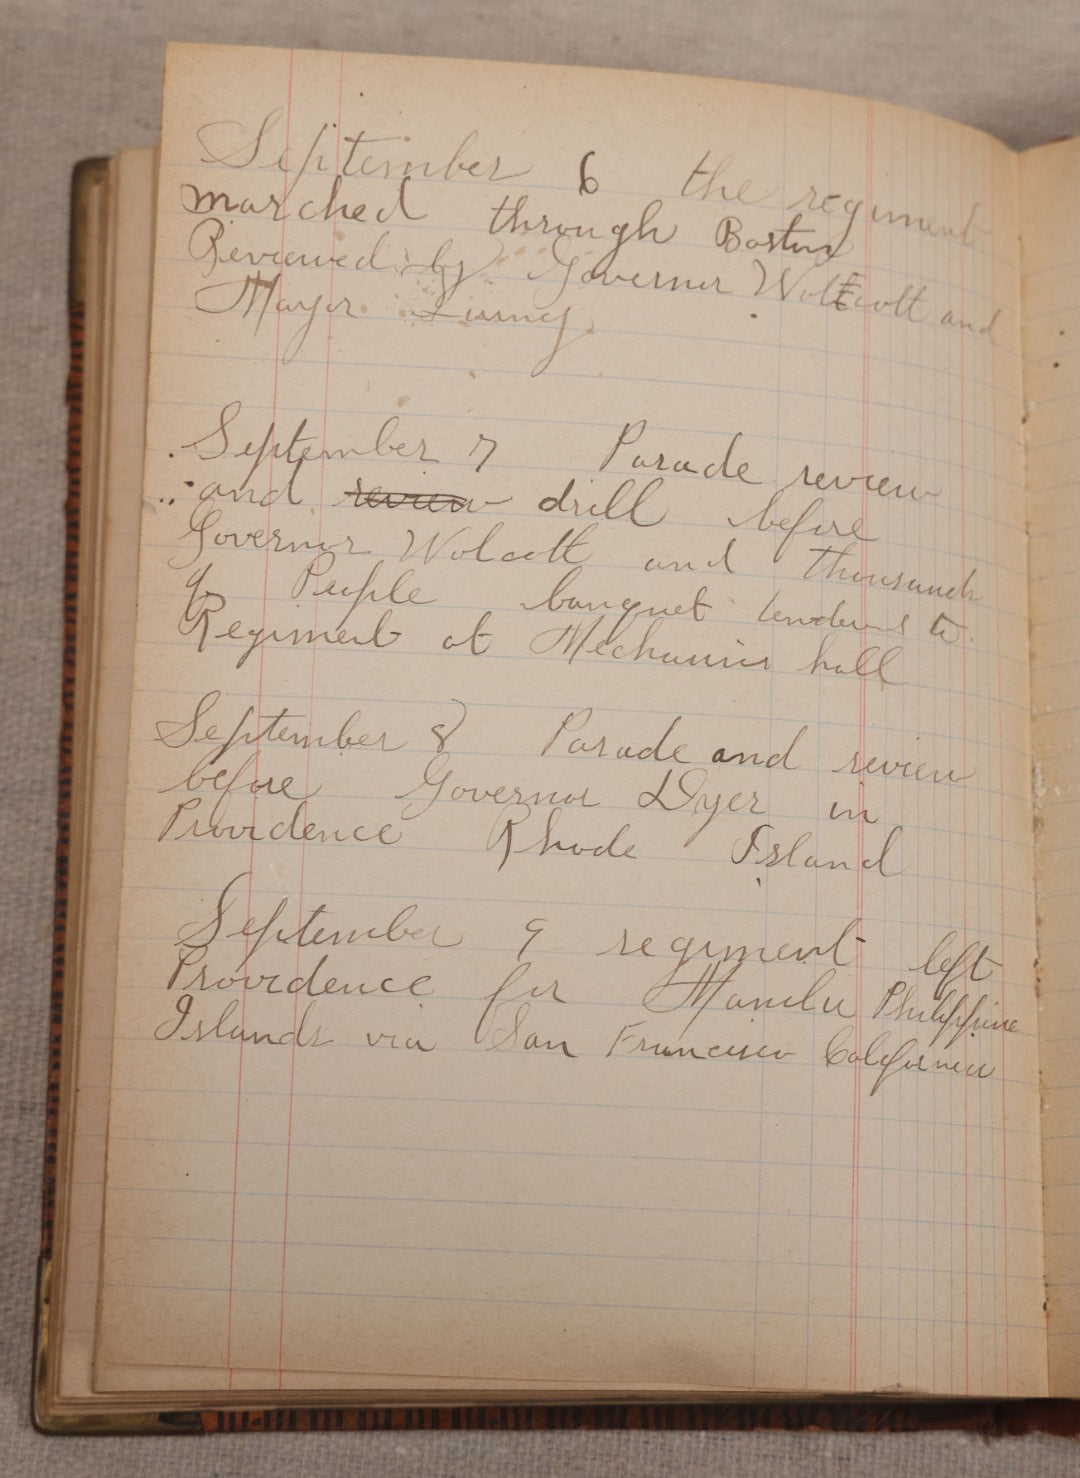 September 6 the regiment
marched through Boston
Reviewed by Governor Wolcott and
Mayor Quincy
September 7 Parade review
and review drill before
Governor Wolcott and thousands
of People banquet tendered to
Regiment at Mechanics hall
September 8 Parade and review
before Governor Dyer in
Providence Rhode Island
September 9 regiment left
Providence for Manila Philippine
Islands via San Francisco California